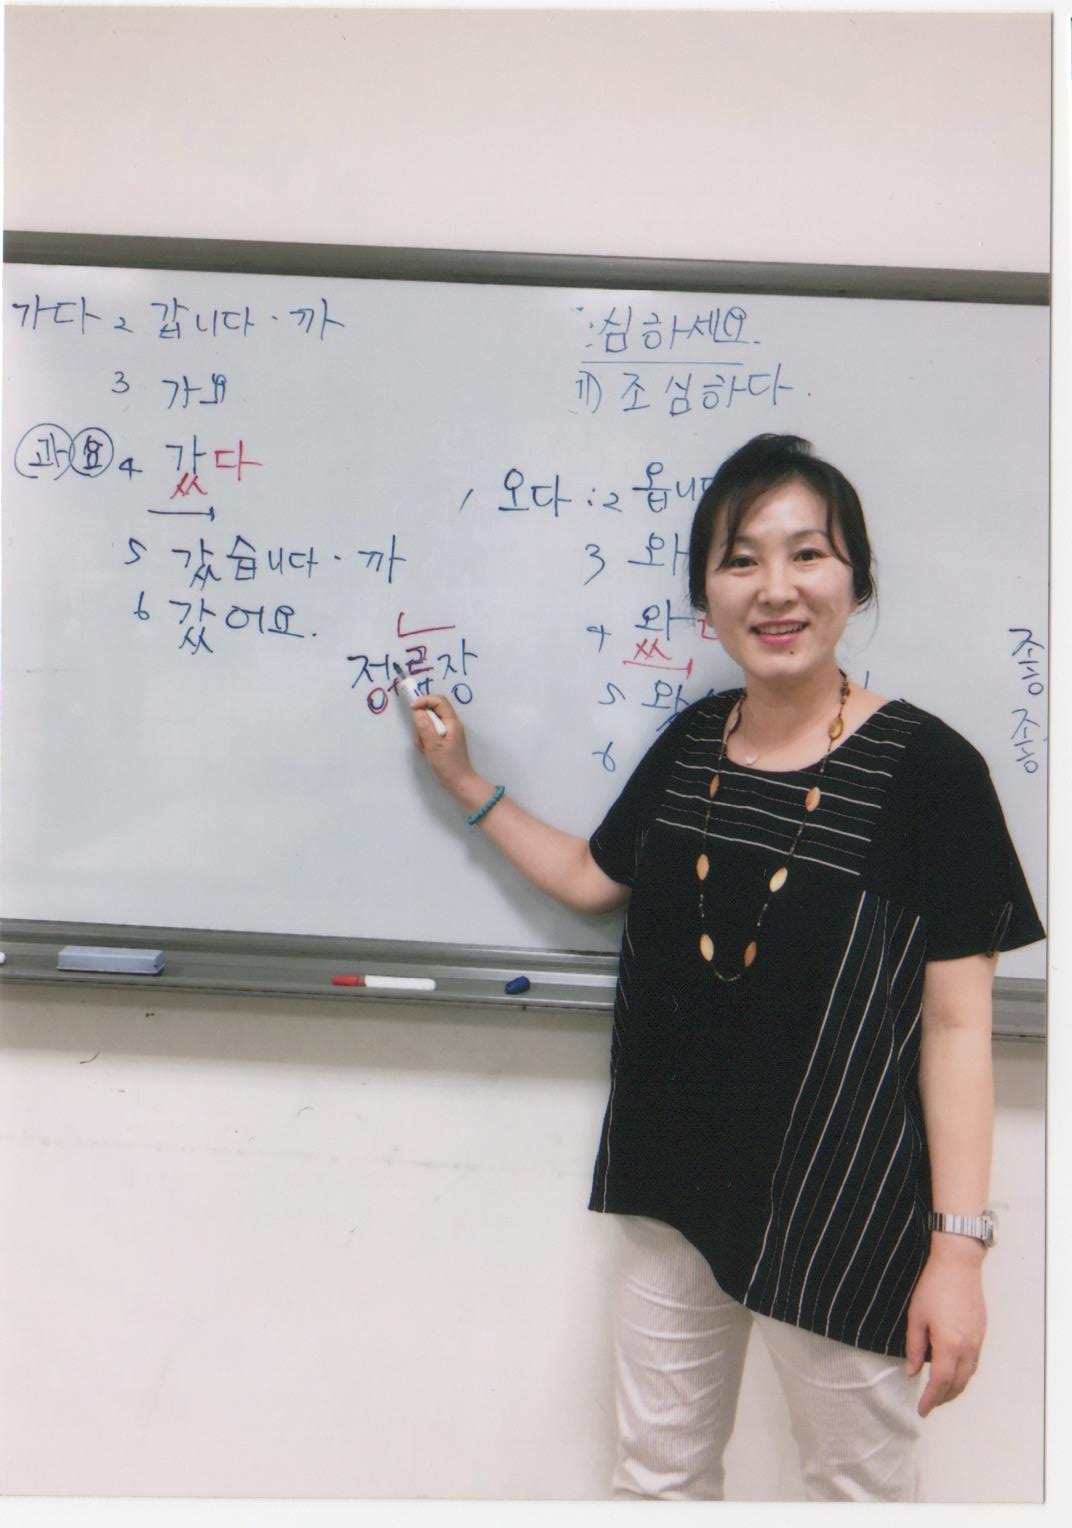 가다 2 갑니다 · 까
3 가요
과 요 4 갔다
5 갔습니다 · 까
6 갔어요.
심하세요.
조심하다.
1 오다 : 2 옵니다
3 와
4 왔
5 왔
6